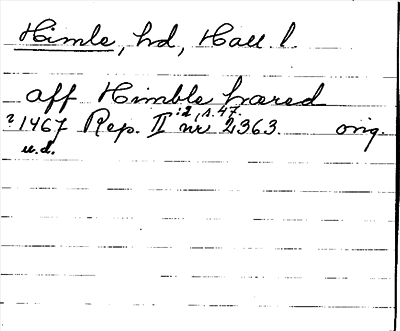 Himle, hd, Hall l.
aff Himble hæred
id, s. 47.
? 1467 Rep. II nr 2363. orig.
u.d.